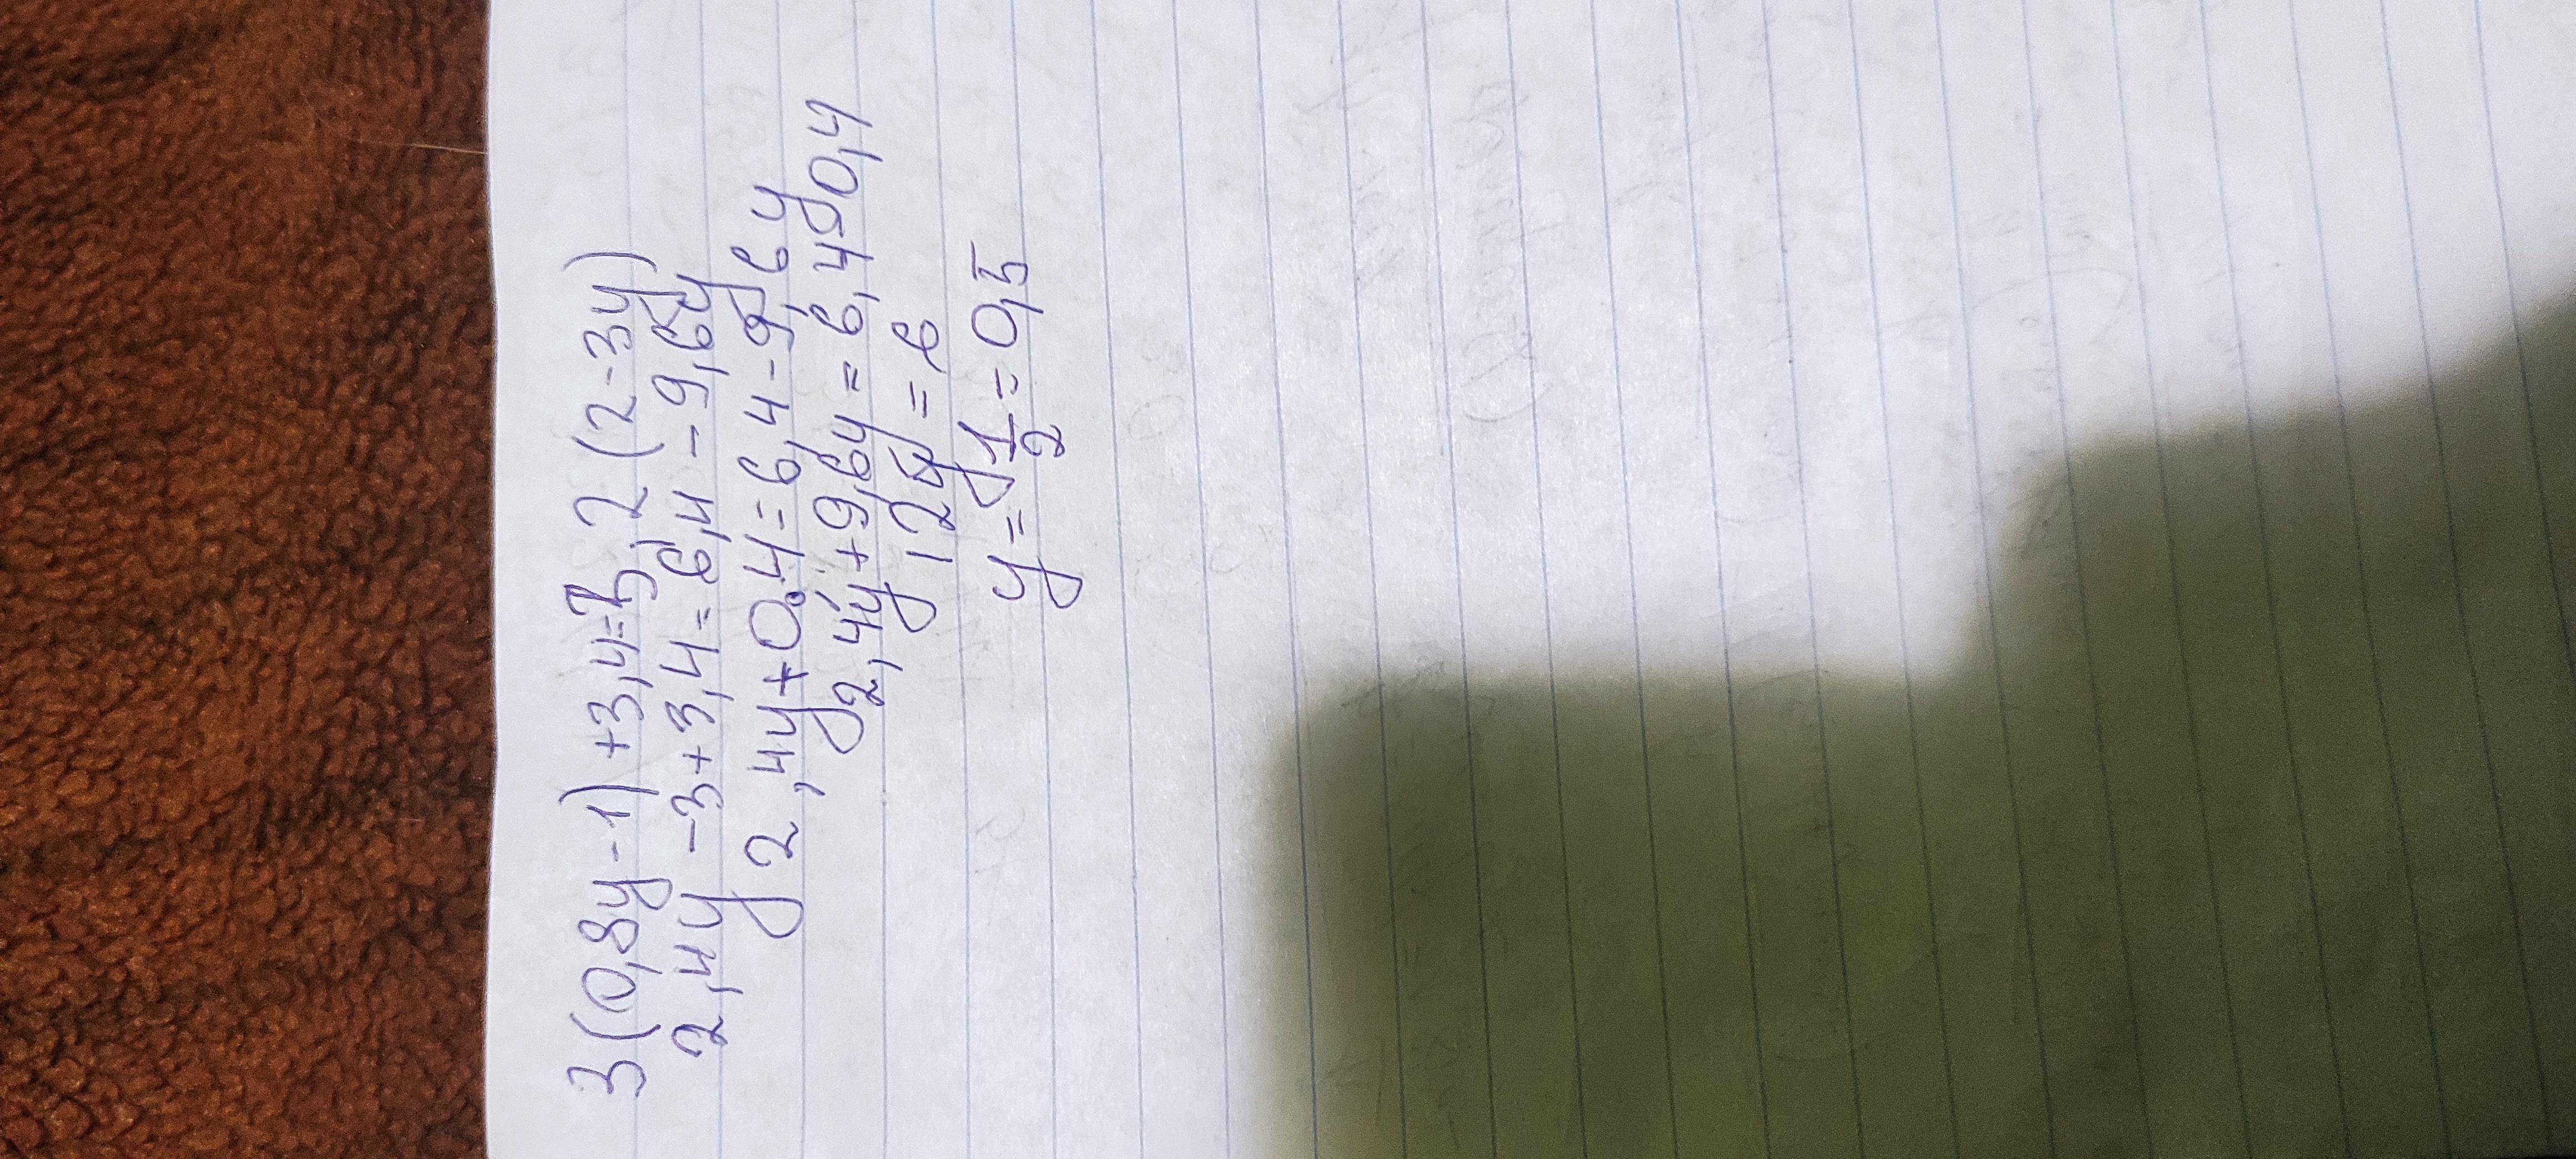 3(0,8y-1)+3,4=3,2(2-3y)
2,4y-3+3,4=6,4-9,6y
2,4y+0,4=6,4-9,6y
2,4y+9,6y=6,4-0,4
12y=6
y=1/2=0,5